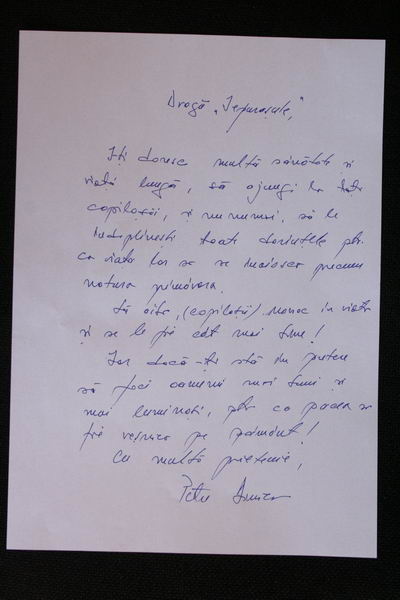 Dragă „Iepurașule,”
Îți doresc multă sănătate și
viață lungă, să ajungi la toți
copilașii, și nu numai, să le
îndeplinești toate dorințele ptr.
ca viața lor se se înnoiasca precum
natura primăvara.
Să aibă, (copilașii) noroc in viață
și se le fie cât mai bine!
Iar dacă-ți stă în putere
să faci oamenii mai buni și
mai luminați, ptr ca pacea se
fie veșnica pe pământ!
Cu multă prietenie,
Petru